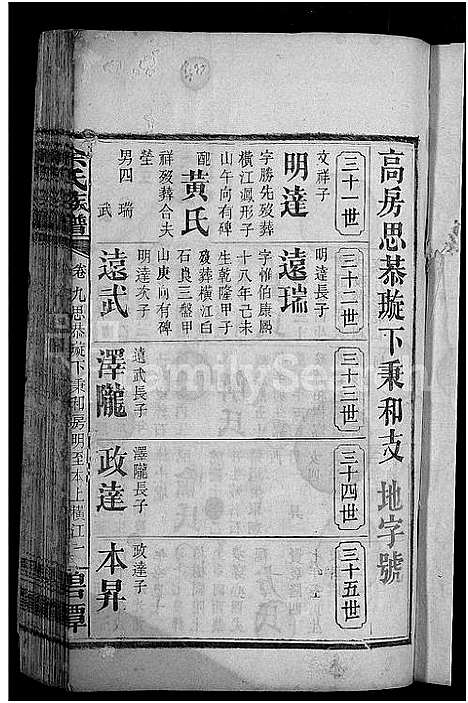 高房思恭璇下秉和支 地字號
三十一世
文祥子
明達
字勝先歿葬
橫江鳳形子
山午向有碑
配黃氏
祥歿葬合夫
塋
男四 瑞
武
三十二世
明達長子
遠瑞
字惟伯康熙
十八年己未
生乾隆甲子
歿葬橫江白
石良三盤甲
山庚向有碑
明達次子
遠武
三十三世
遠武長子
澤隴
三十四世
澤隴長子
政達
三十五世
政達子
本昇
余氏族譜
卷九思恭璇下秉和房明至本上橫江一
碧潭
FamilySearch